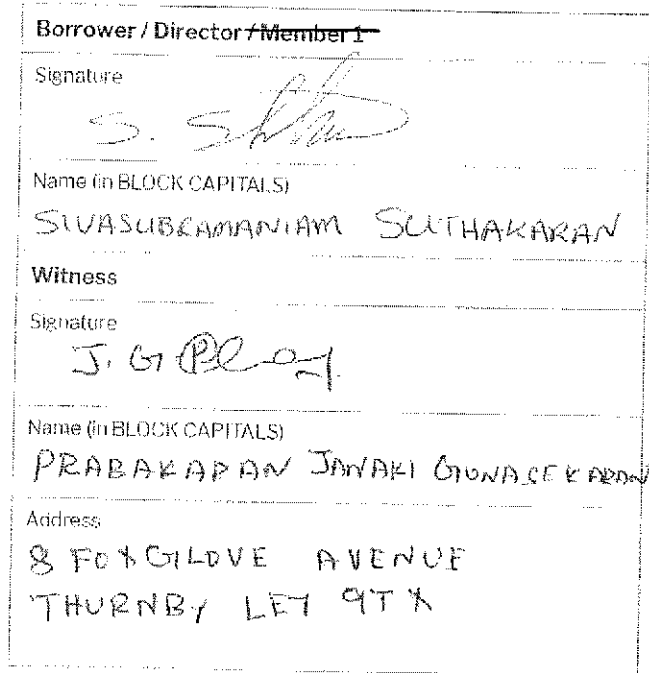 Borrower / Director / Member 1
Signature
S. S
Name (in BLOCK CAPITALS)
SIVASUBRAMANIAM SUTHAKARAN
Witness
Signature
J. G
Name (in BLOCK CAPITALS)
PRABAKARAN JANAKI GUNASEKARAN
Address
8 FOXGLOVE AVENUE
THURNBY LE7 9TX